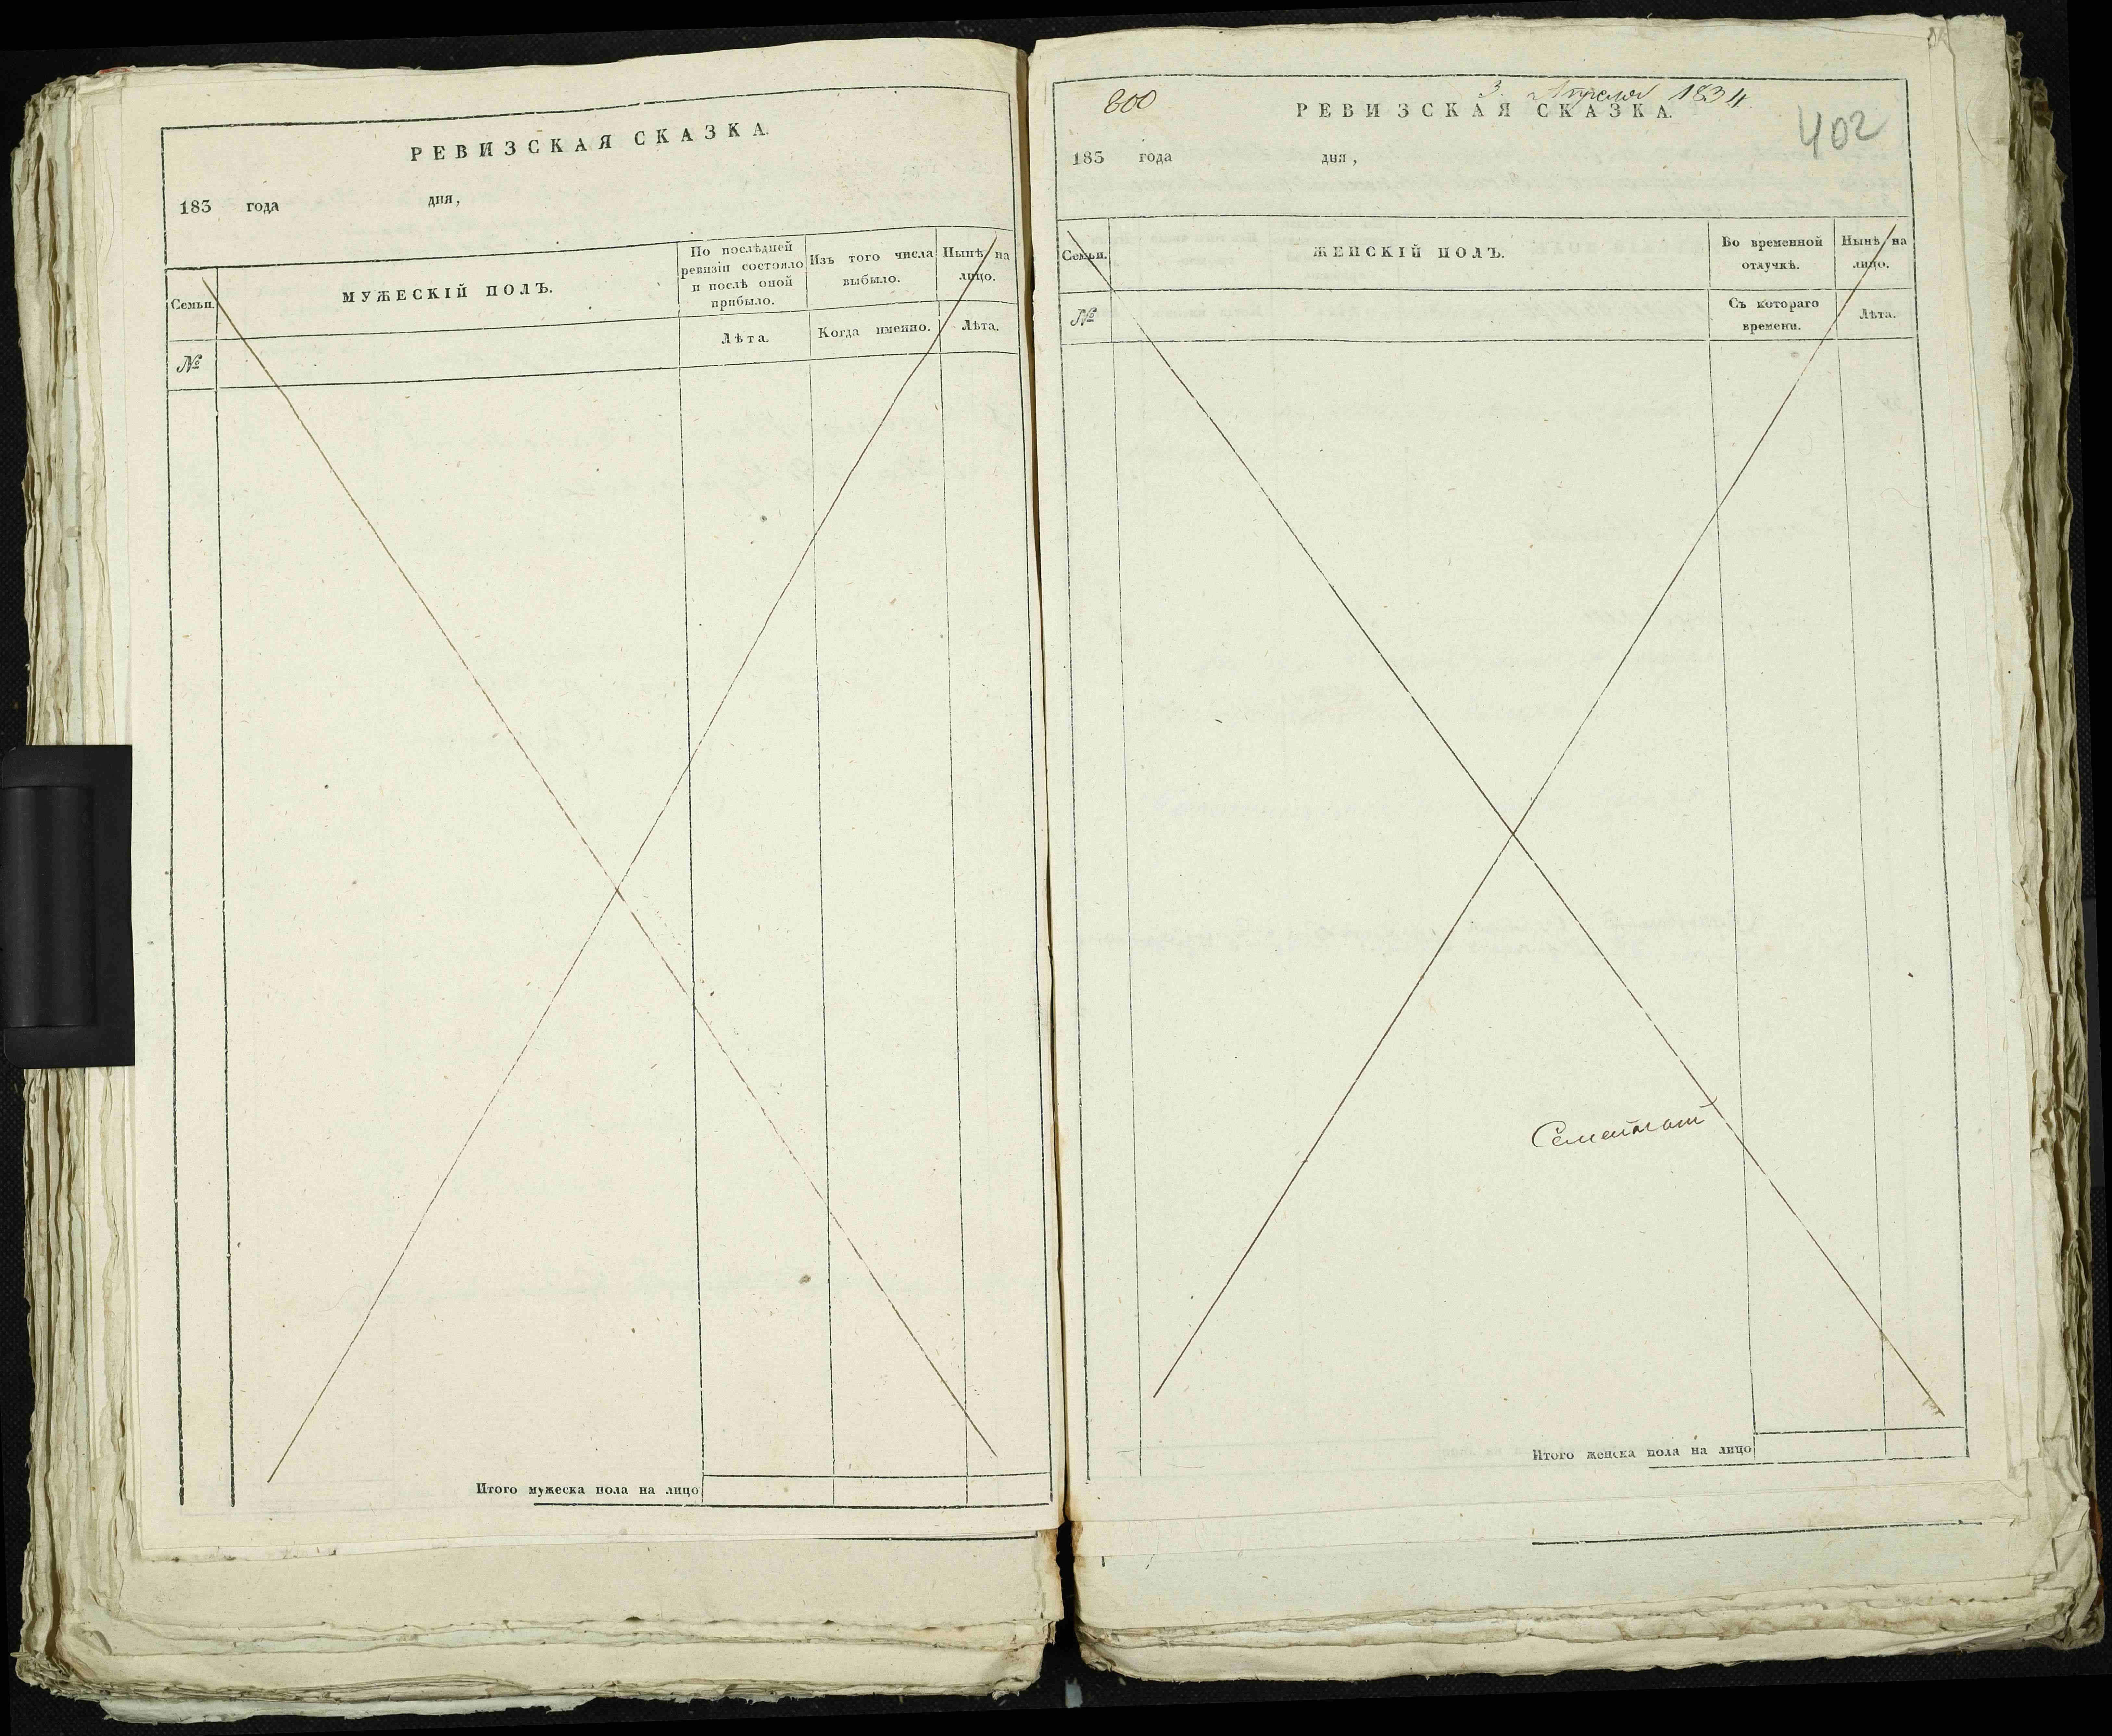 РЕВИЗСКАЯ СКАЗКА.
183 года дня,
Семьи.
МУЖЕСКІЙ ПОЛЪ.
По послѣдней
ревизіи состояло
и послѣ оной
прибыло.
Изъ того числа
выбыло.
Нынѣ на
лицо.
№
Лѣта.
Когда именно.
Лѣта.
Итого мужеска пола на лицо
800
3. Апреля 1834.
РЕВИЗСКАЯ СКАЗКА.
402
183 года дня,
Семьи.
ЖЕНСКІЙ ПОЛЪ.
Во временной
отлучкѣ.
Нынѣ на
лицо.
№
Съ котораго
времени.
Лѣта.
Итого женска пола на лицо